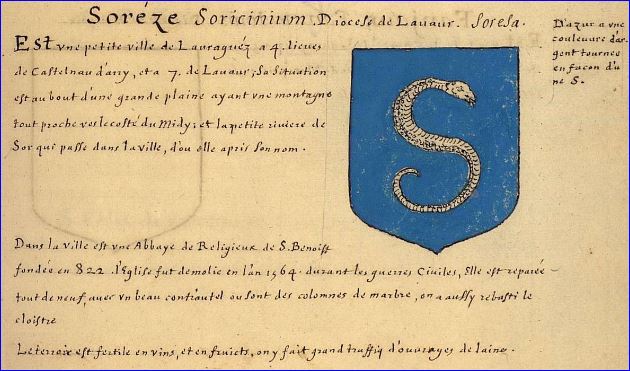 Soréze Soricinium. Diocese de Lavaur. Soresa.
Est vne petite ville de Lauraguéz a 4. lieues
de Castelnau d'arry, et a 7. de Lavaur; Sa Situation
est au bout d'une grande plaine ayant vne montagne
tout proche vers le costé du Midy; et la petite riviere de
Sor qui passe dans la ville, d'ou elle a pris son nom.
D'azur a vne
couleuvre d'ar-
gent tournee
en facon d'u
ne S.
Dans la ville est vne Abbaye de Religieux de S. Benoist
fondée en 822. l'Eglise fut demolie en l'an 1564. durant les guerres Civiles, Elle est reparée
tout de neuf, avec vn beau contrautel ou sont des colomnes de marbre, on a aussy rebasti le
cloistre
Le terroir est fertile en vins, et en fruicts, on y fait grand traffiq d'ouvrages de laine.